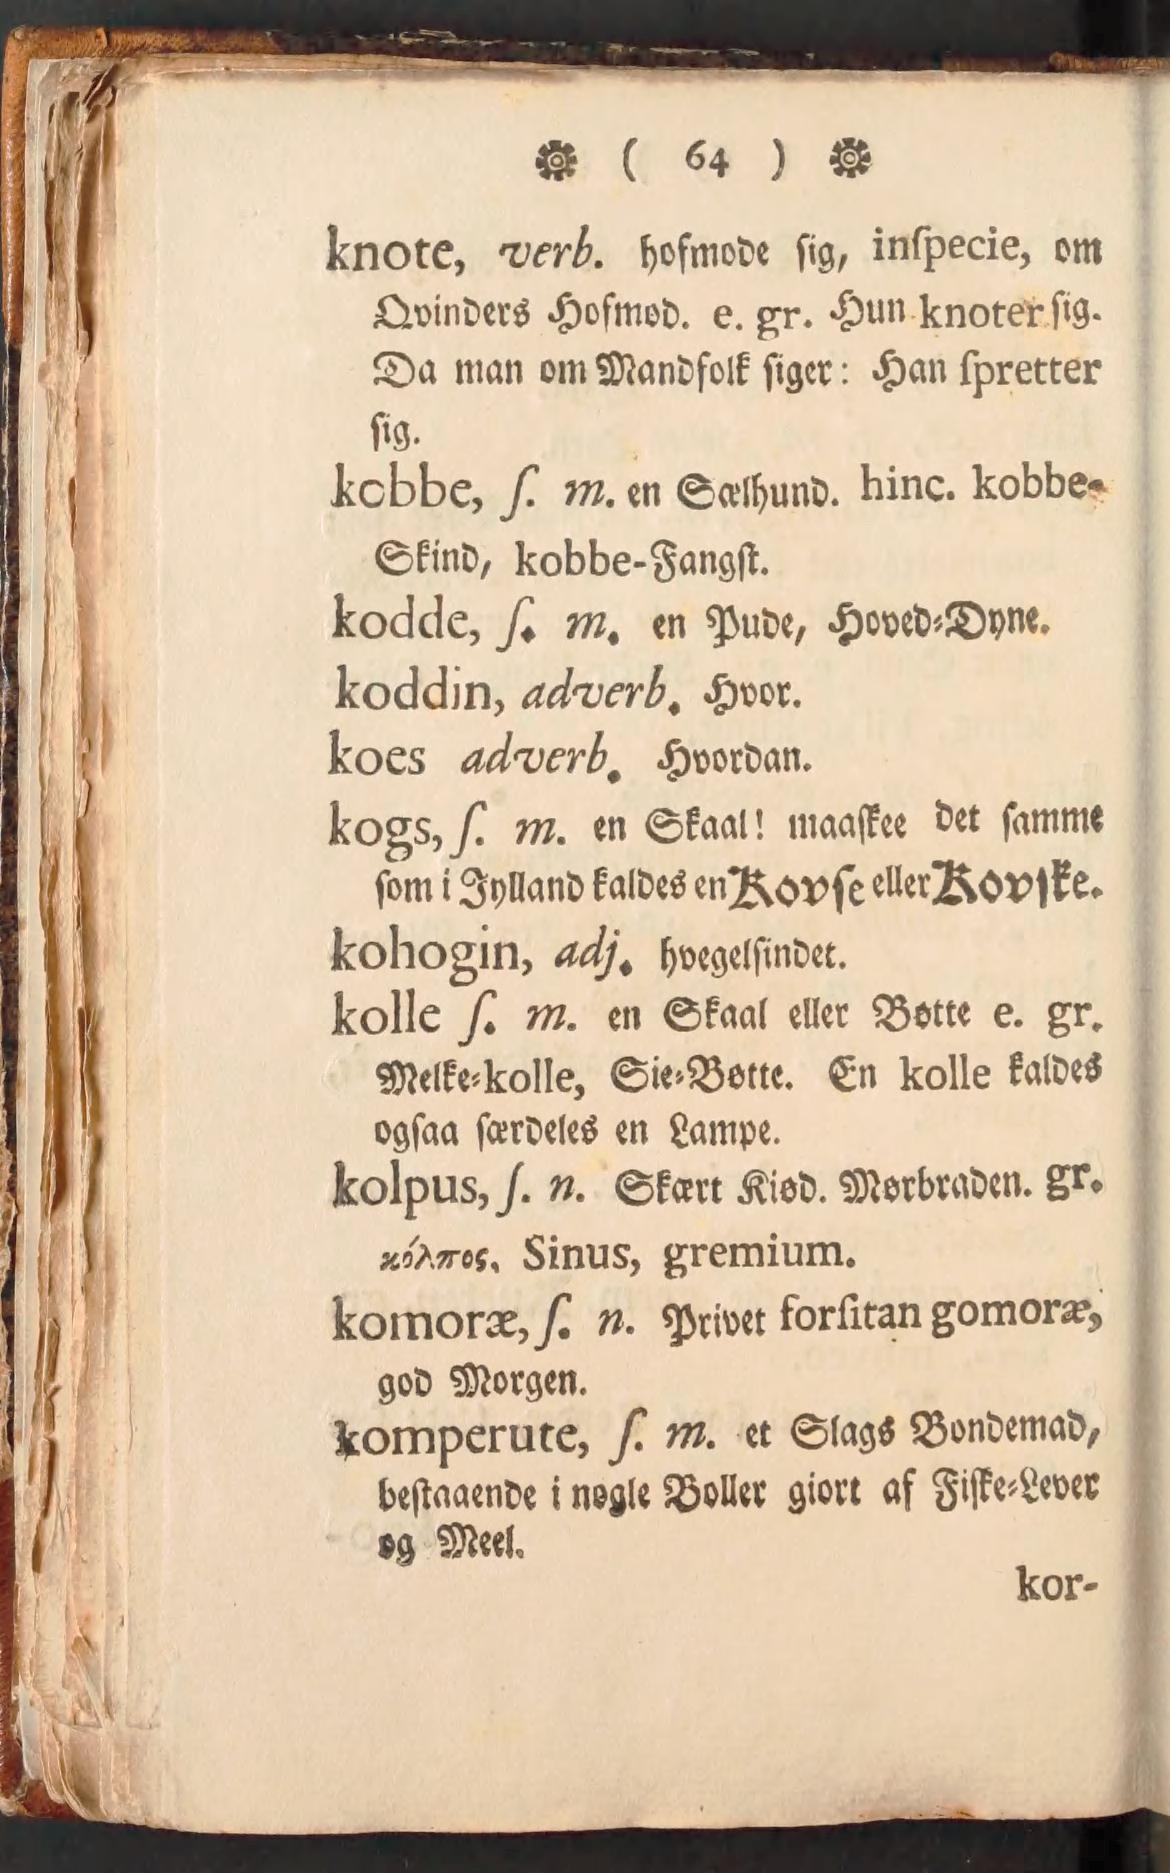 ❁ ( 64 ) ❁
knote, verb. hofmode sig, inſpecie, om
Qvinders Hofmod. e. gr. Hun knoter ſig.
Da man om Mandfolk ſiger: Han ſpretter
ſig.
kobbe, ſ. m. en Sælhund. hinc. kobbe-
Skind, kobbe-Fangſt.
kodde, ſ. m. en Pude, Hoved-Dyne.
koddin, adverb. Hvor.
koes adverb. Hvordan.
kogs, ſ. m. en Skaal! maaſkee det ſamme
ſom i Jylland kaldes en Kovſe eller Kovſke.
kohogin, adj. hvegelſindet.
kolle ſ. m. en Skaal eller Bøtte e. gr.
Melke-kolle, Sie-Bøtte. En kolle kaldes
ogſaa ſærdeles en Lampe.
kolpus, ſ. n. Skært Kiød. Mørbraden. gr.
κόλπος. Sinus, gremium.
komoræ, ſ. n. Privet forſitan gomoræ,
god Morgen.
komperute, ſ. m. et Slags Bondemad,
beſtaaende i nøgle Boller giort af Fiſke-Lever
og Meel.
kor-